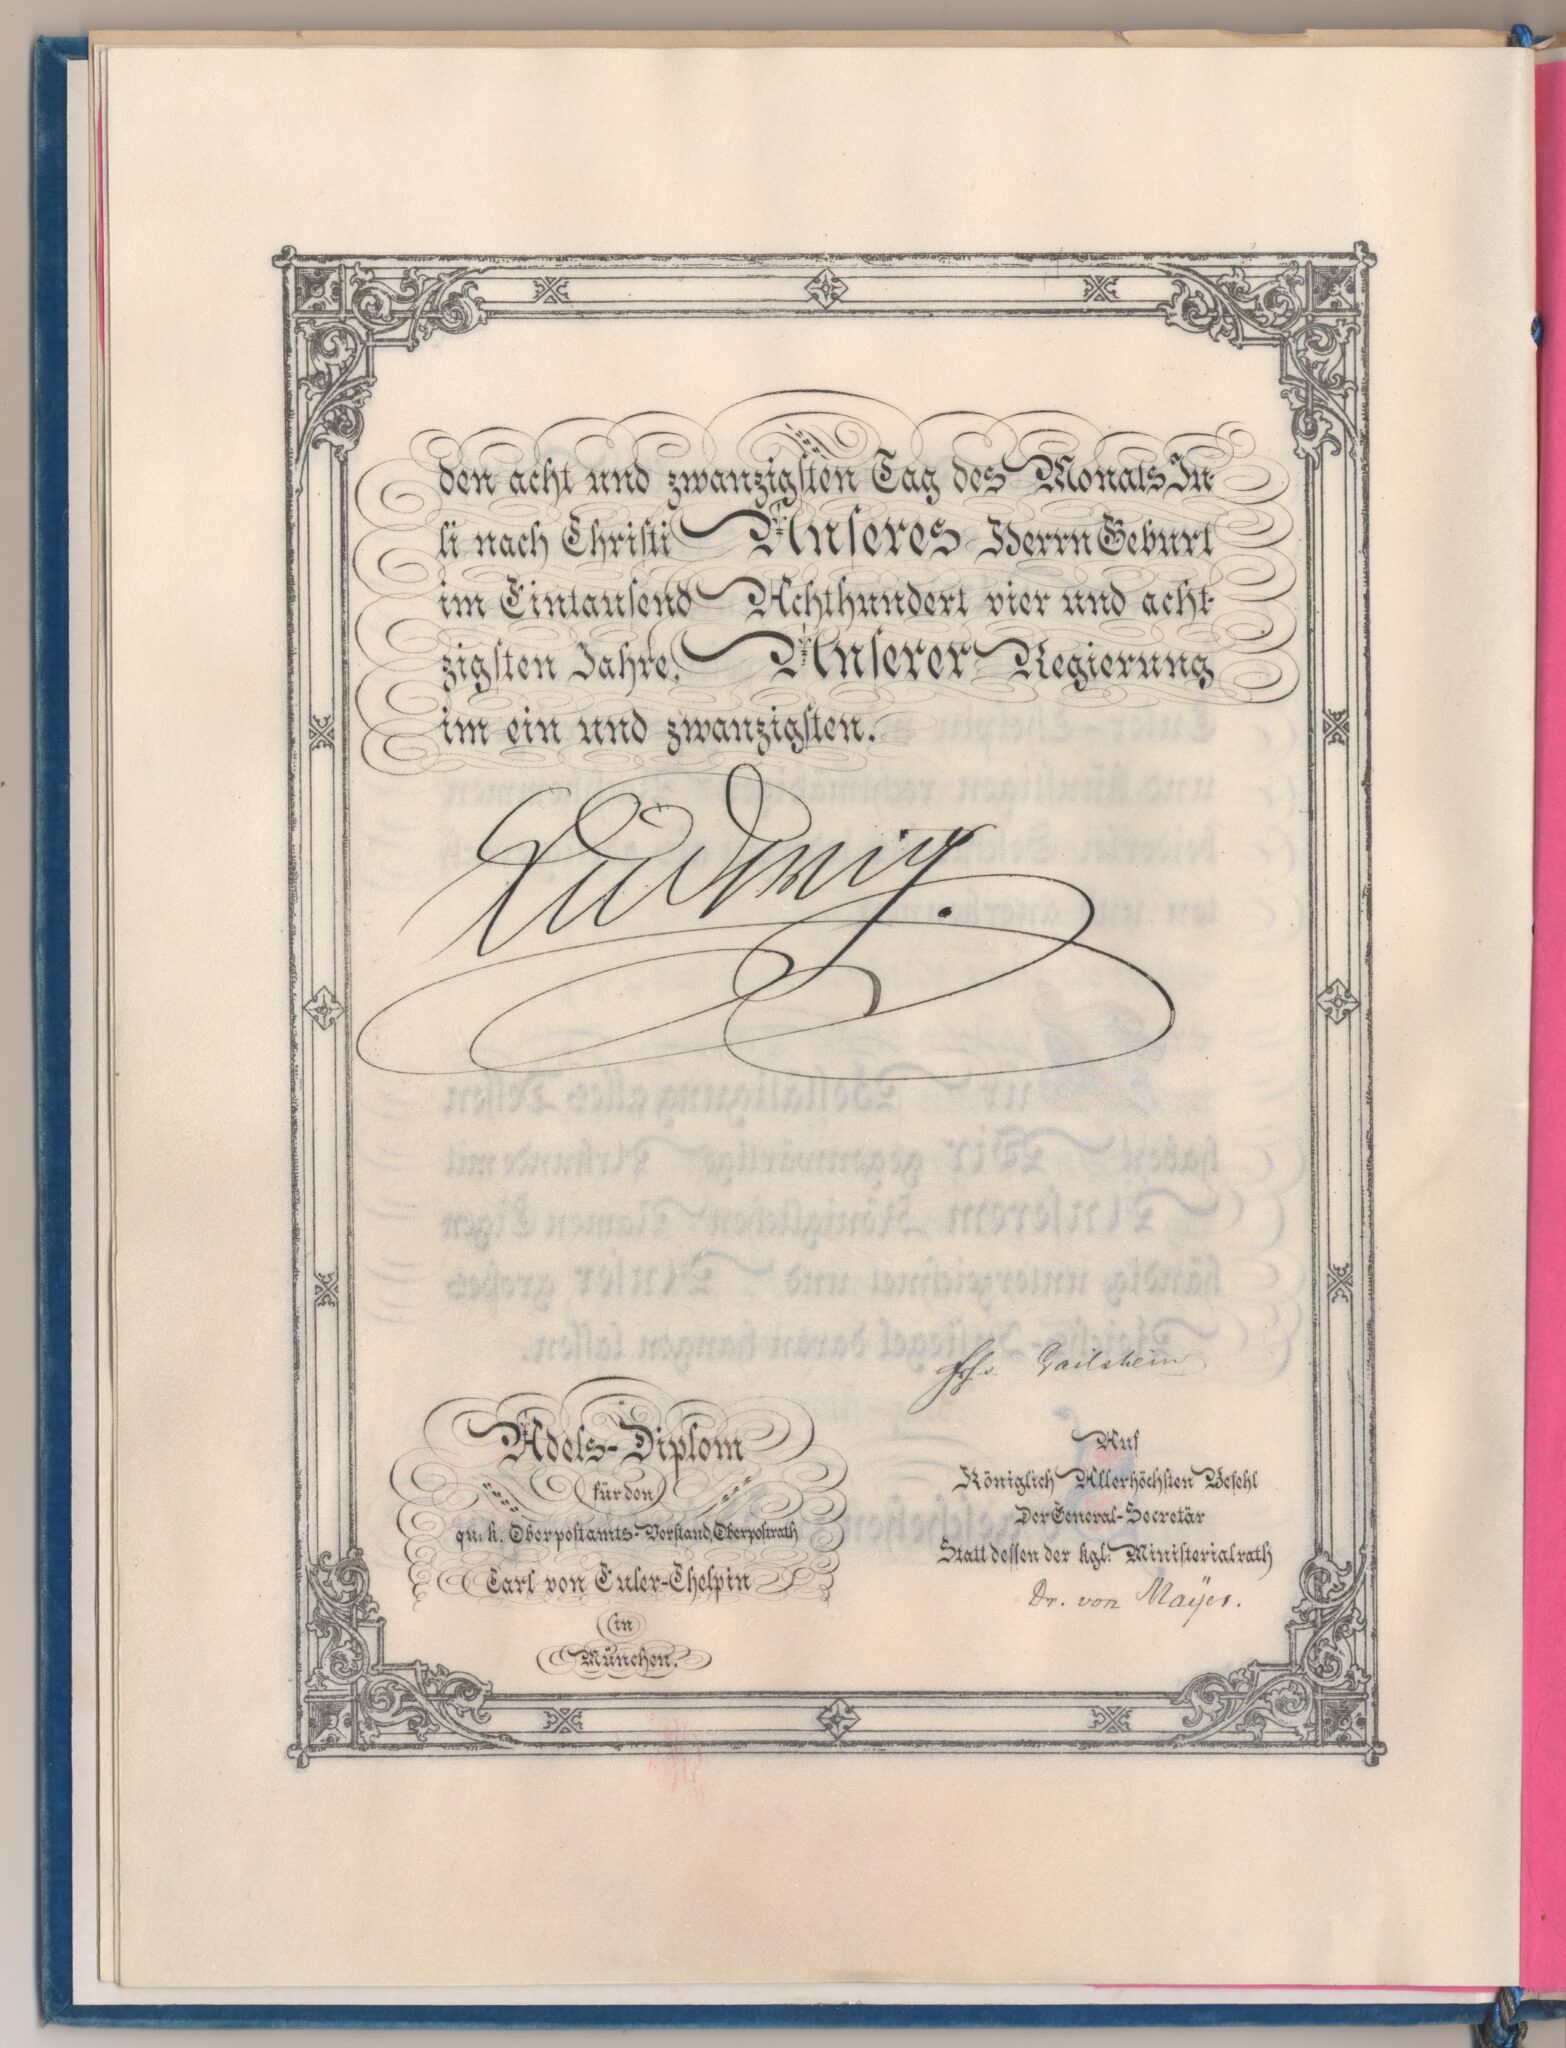 den acht und zwanzigsten Tag des Monats Ju-
li nach Christi Unseres Herrn Geburt
im Eintausend Achthundert vier und acht-
zigsten Jahre, Unserer Regierung
im ein und zwanzigsten.
Ludwig.
Frhr. v. Crailsheim
Adels-Diplom
für den
qu. k. Oberpostamts-Vorstand, Oberpostrath
Carl von Euler-Chelpin
in
München.
Auf
Königlich Allerhöchsten Befehl
Der General-Secretär
Statt dessen der kgl. Ministerialrath
Dr. von Mayer.